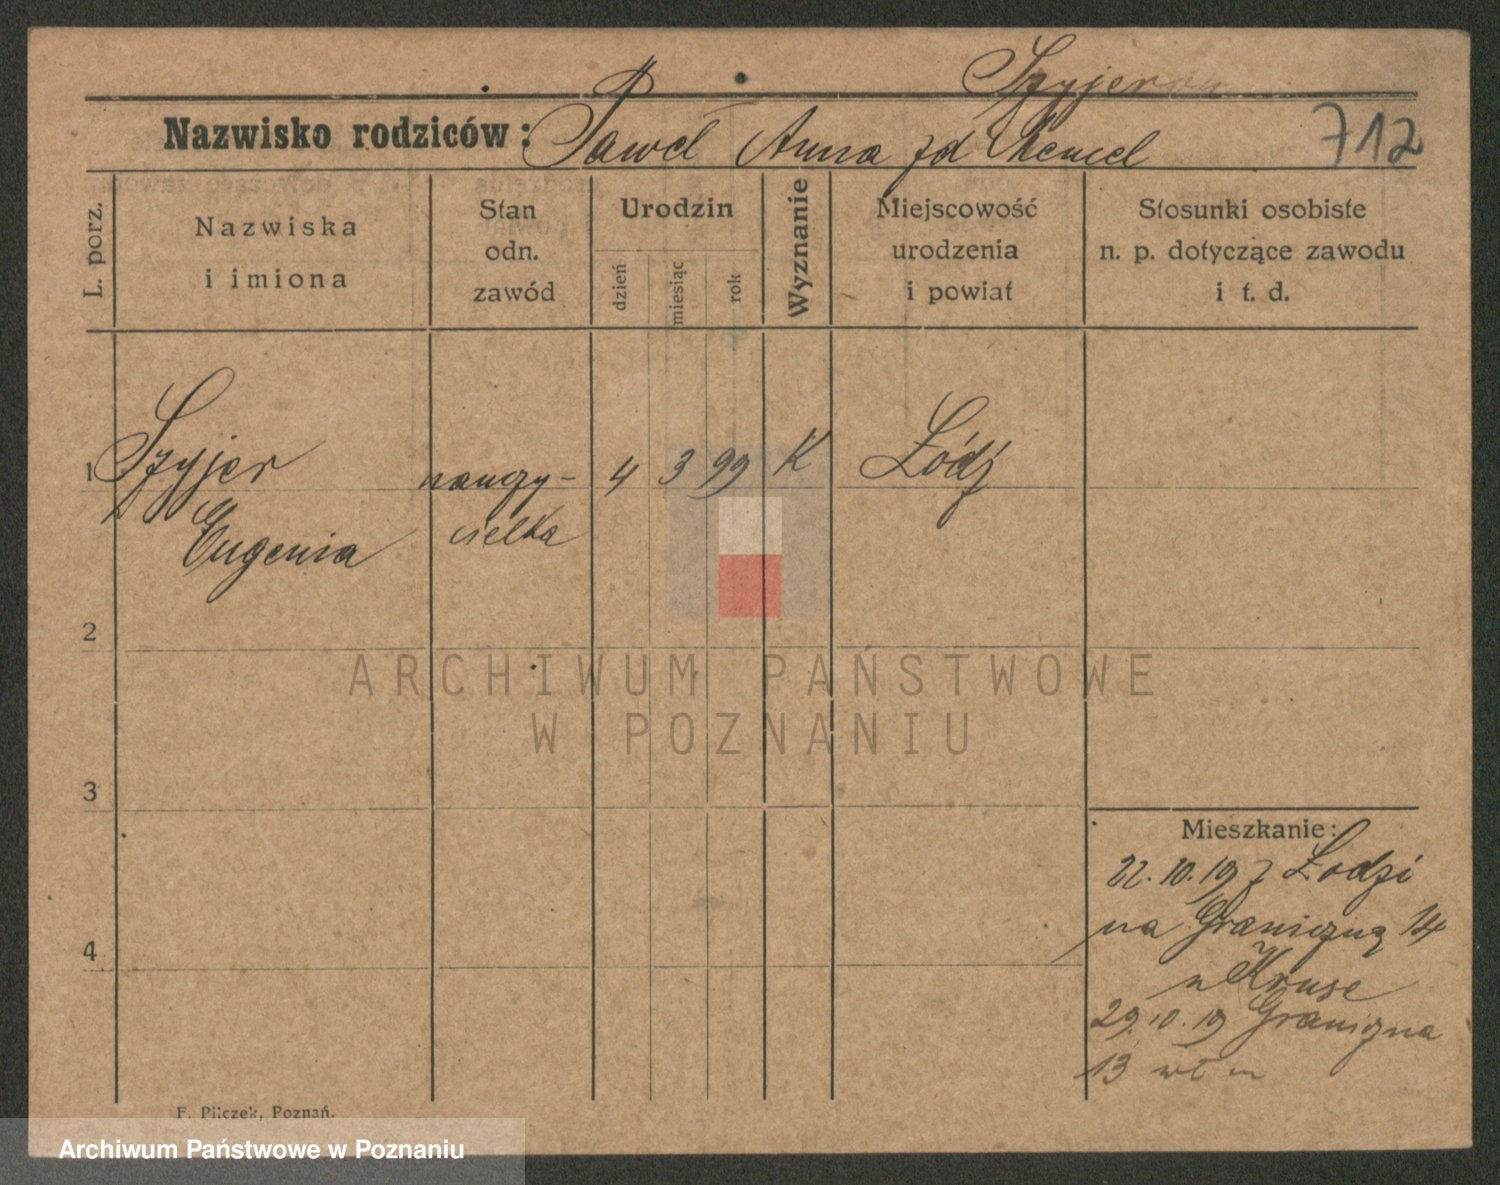 Szyjer
Nazwisko rodziców: Paweł Anna zd Hencel
712
L. porz.
Nazwiska
i imiona
Stan
odn.
zawód
Urodzin
dzień
miesiąc
rok
Wyznanie
Miejscowość
urodzenia
i powiat
Stosunki osobiste
n. p. dotyczące zawodu
i t. d.
1 Szyjer nauczy- 4 3 99 K Łódź
Eugenia cielka
2
ARCHIWUM PAŃSTWOWE
W POZNANIU
3
Mieszkanie:
22.10.19 z Łodzi
4 na Graniczną 14
u Kruse
29.10.19 Graniczna
13
F. Pilczek, Poznań.
Archiwum Państwowe w Poznaniu